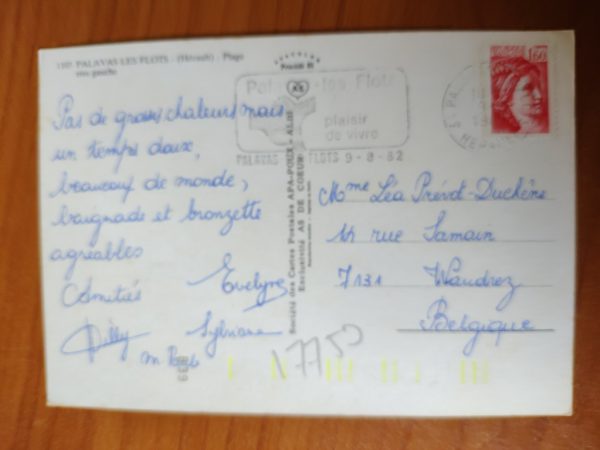 1107 PALAVAS-LES-FLOTS - (Hérault) - Plage
rive gauche
Palavas-les Flots
plaisir
de vivre
PALAVAS FLOTS 9-8-82
1,60
Pas de grosses chaleurs mais
un temps doux,
beaucoup de monde,
baignade et bronzette
agréables
Amitiés Evelyne
Willy Sylviane
Société des Cartes Postales APA-POUX - ALBI
Exclusivité AS DE COEUR
Mme Léa Prévot-Duchêne
rue Samain
7131 Waudrez
Belgique
17750